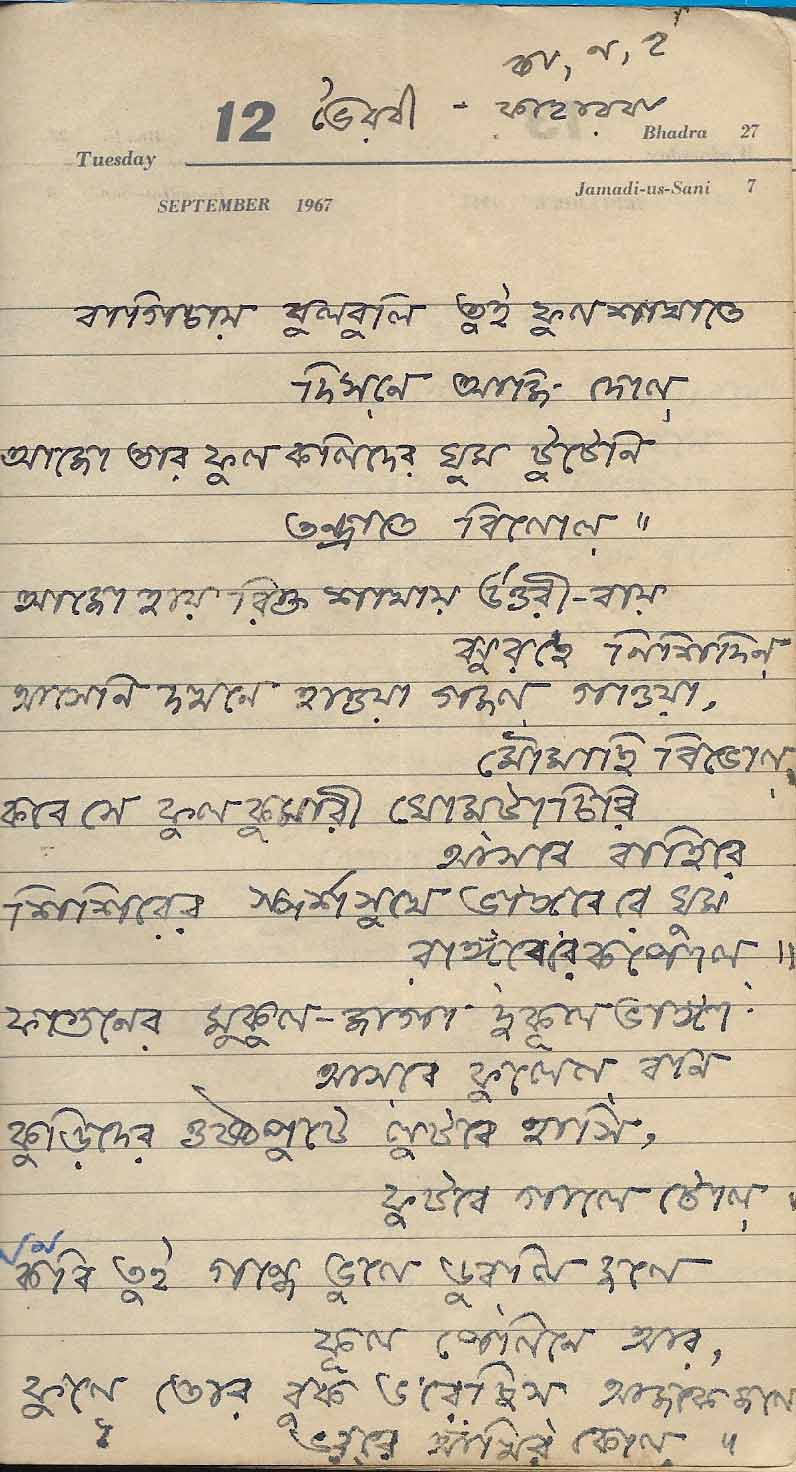 কা, ন, ই
12 ভৈরবী - কাহারবা
Bhadra 27
Tuesday
Jamadi-us-Sani 7
SEPTEMBER 1967
বাগিচায় বুলবুলি তুই ফুল শাখাতে
দিসনে আজি দোল্
আজো তার ফুল কলিদের ঘুম টুটেনি
তন্দ্রাতে বিলোল্ ॥
আজো হায় রিক্ত শাখায় উত্তরী-বায়
ঝুরছে নিশিদিন্
আসেনি দখনে হাওয়া গজল্ গাওয়া,
মৌমাছি বিভোল্
কবে সে ফুল কুমারী ঘোমটা চিরি
আসবে বাহিরে
শিশিরের স্পর্শসুখে ভাঙ্গবে রে ঘুম
রাঙ্গবেরে কপোল্ ॥
ফাগুনের মুকুল-জাগা দুকূল ভাঙ্গা
আসবে ফুলেল্ বান
কুড়িদের ওষ্ঠপুটে লুটবে হাসি,
ফুটবে গালে টোল্
কবি তুই গন্ধে ভুলে ডুবলি জলে
কূল পেলিনে আর,
ফুলে তোর বুক ভরেছিস আজকে জলে
ভররে আঁখির কোল্ ॥